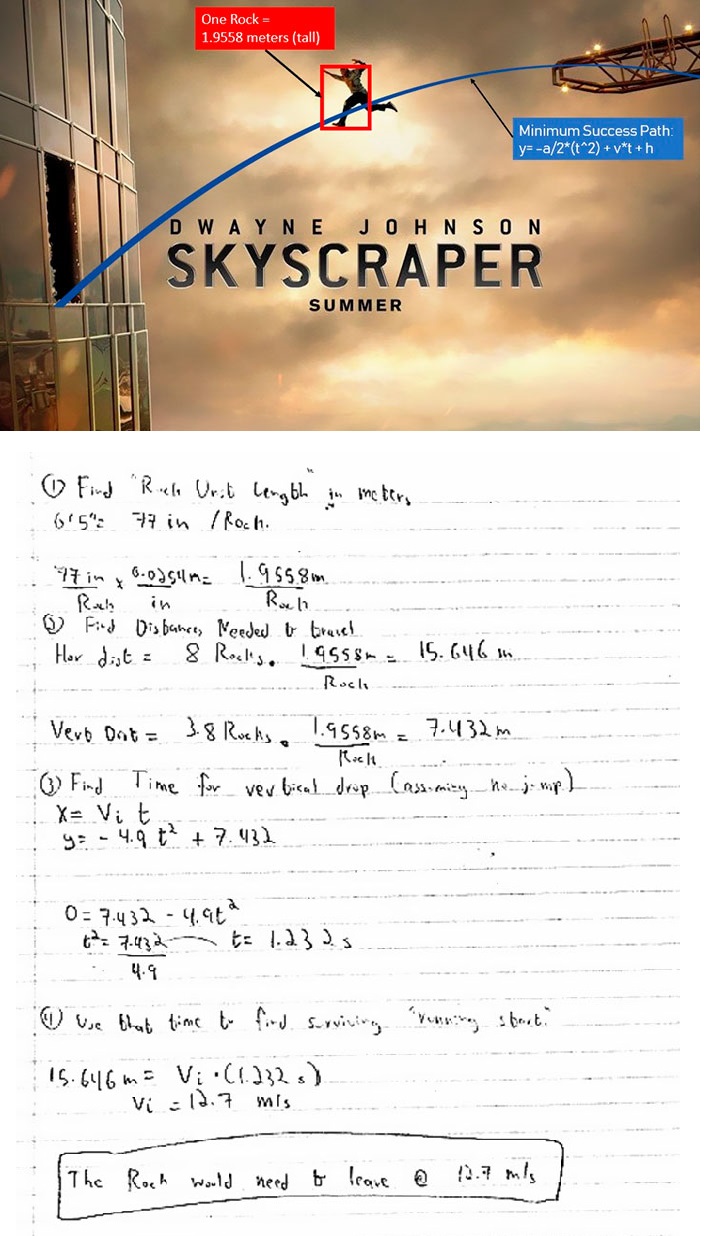 One Rock =
1.9558 meters (tall)
Minimum Success Path:
y= -a/2*(t^2) + v*t + h
DWAYNE JOHNSON
SKYSCRAPER
SUMMER
① Find "Rock Unit Length" in meters
6'5"= 77 in /Rock.
77 in / Rock x 0.0254m / in = 1.9558m / Rock
② Find Distances Needed to travel
Hor dist = 8 Rocks · 1.9558m / Rock = 15.646 m
Vert Dist = 3.8 Rocks · 1.9558m / Rock = 7.432m
③ Find Time for vertical drop (assuming no jump)
X= Vi t
y= - 4.9 t² + 7.432
0=7.432 - 4.9t²
t²= 7.432 / 4.9 t= 1.232 s
④ Use that time to find surviving "running start."
15.646 m = Vi · (1.232 s)
Vi = 12.7 m/s
The Rock would need to leave @ 12.7 m/s